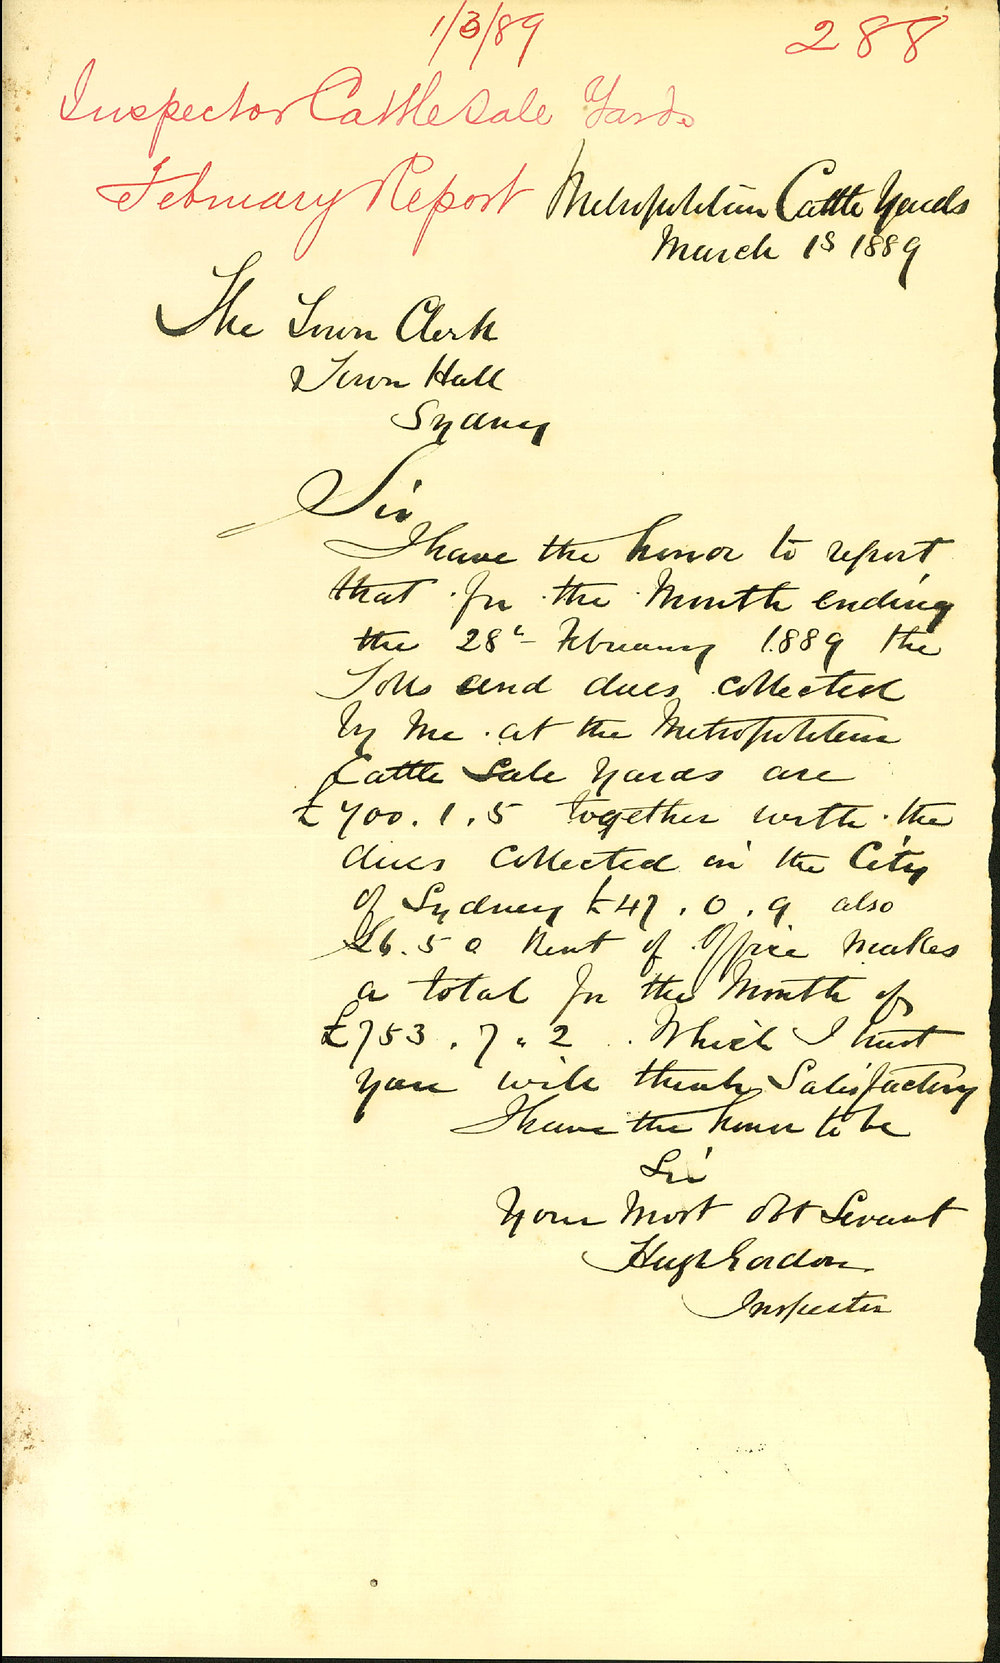 1/3/89
288
Inspector Cattle Sale Yards
February Report
Metropolitan Cattle Yards
March 1s 1889
The Town Clerk
Town Hall
Sydney
Sir
I have the honor to report
that for the Month ending
the 28th February 1889 the
Tolls and dues collected
by me at the Metropolitan
Cattle Sale Yards are
£700.1.5 together with the
dues collected in the City
of Sydney £47.0.9 also
£6.5 0 Rent of Office makes
a total for the Month of
£753.7.2. Which I trust
you will think Satisfactory
I have the honor to be
Sir
Your Most Obt Servant
Hugh Gordon
Inspector